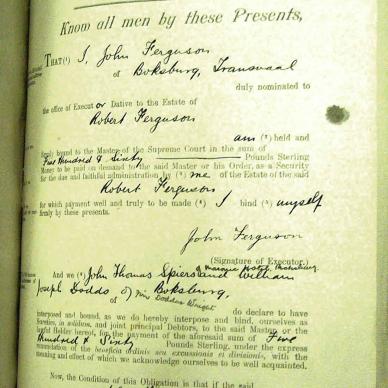 Know all men by these Presents,
THAT (1) I, John Ferguson
of Boksburg, Transvaal
duly nominated to
the office of Execut or Dative to the Estate of
Robert Ferguson
am (2) held and
firmly bound to the Master of the Supreme Court in the sum of
Five Hundred & Sixty Pounds Sterling
Money to be paid on demand to the said Master or his Order, as a Security
for the due and faithful administration by (3) me of the Estate of the said
Robert Ferguson
for which payment well and truly to be made (4) I bind (5) myself
firmly by these presents.
John Ferguson
(Signature of Executor.)
And we (6) John Thomas Spiers and William
Joseph Dodds of Boksburg,
of
do declare to have
interposed and bound, as we do hereby interpose and bind, ourselves as
Sureties, in solidum, and joint principal Debtors, to the said Master or the
lawful Holder hereof, for the payment of the aforesaid sum of Five
Hundred & Sixty Pounds Sterling, under the express
renunciation of the beneficia ordinis seu excussionis et divisionis, with the
meaning and effect of which we acknowledge ourselves to be well acquainted.
Now, the Condition of this Obligation is that if the said